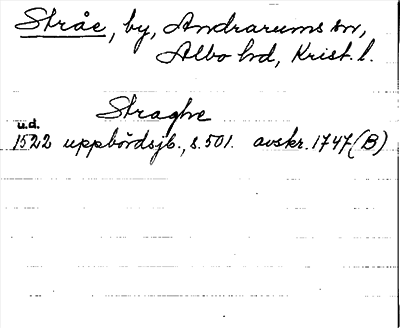 Stråe, by, Andrarums sn,
Albo hd, Krist. l.
Straghe
u.d.
1522 uppbördsjb., s. 501. avskr. 1747 (B)